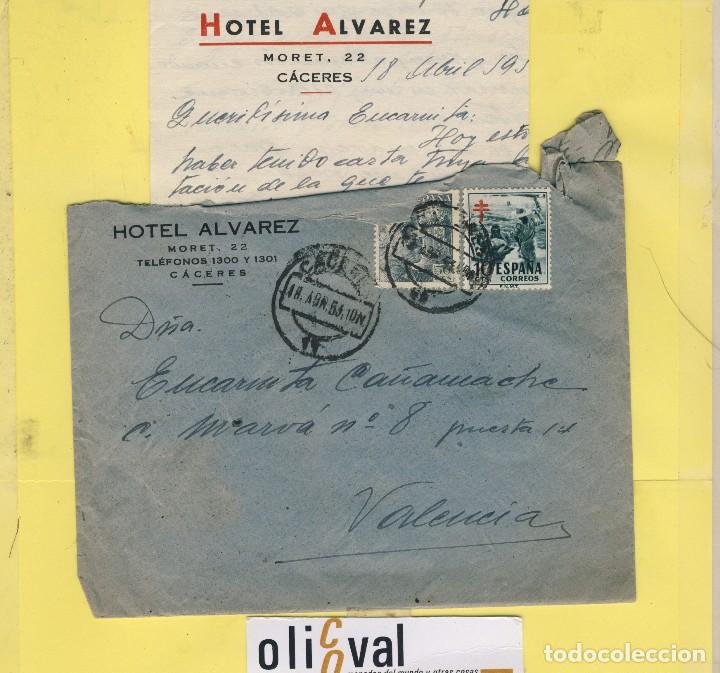 HOTEL ALVAREZ
MORET, 22
CÁCERES 18 Abril 195
Queridísima Encarnita:
Hoy
haber tenido carta tuya
tación de la que te
HOTEL ALVAREZ
MORET, 22
TELÉFONOS 1300 Y 1301
CÁCERES
CÁCERES
18. ABR. 53. 10N
10 ESPAÑA
CORREOS
F.N.M.T
Dña.
Encarnita Cañamache
c. Marvá nº 8 puerta 14
Valencia
olicoval
monedas del mundo y otras cosas
todocoleccion